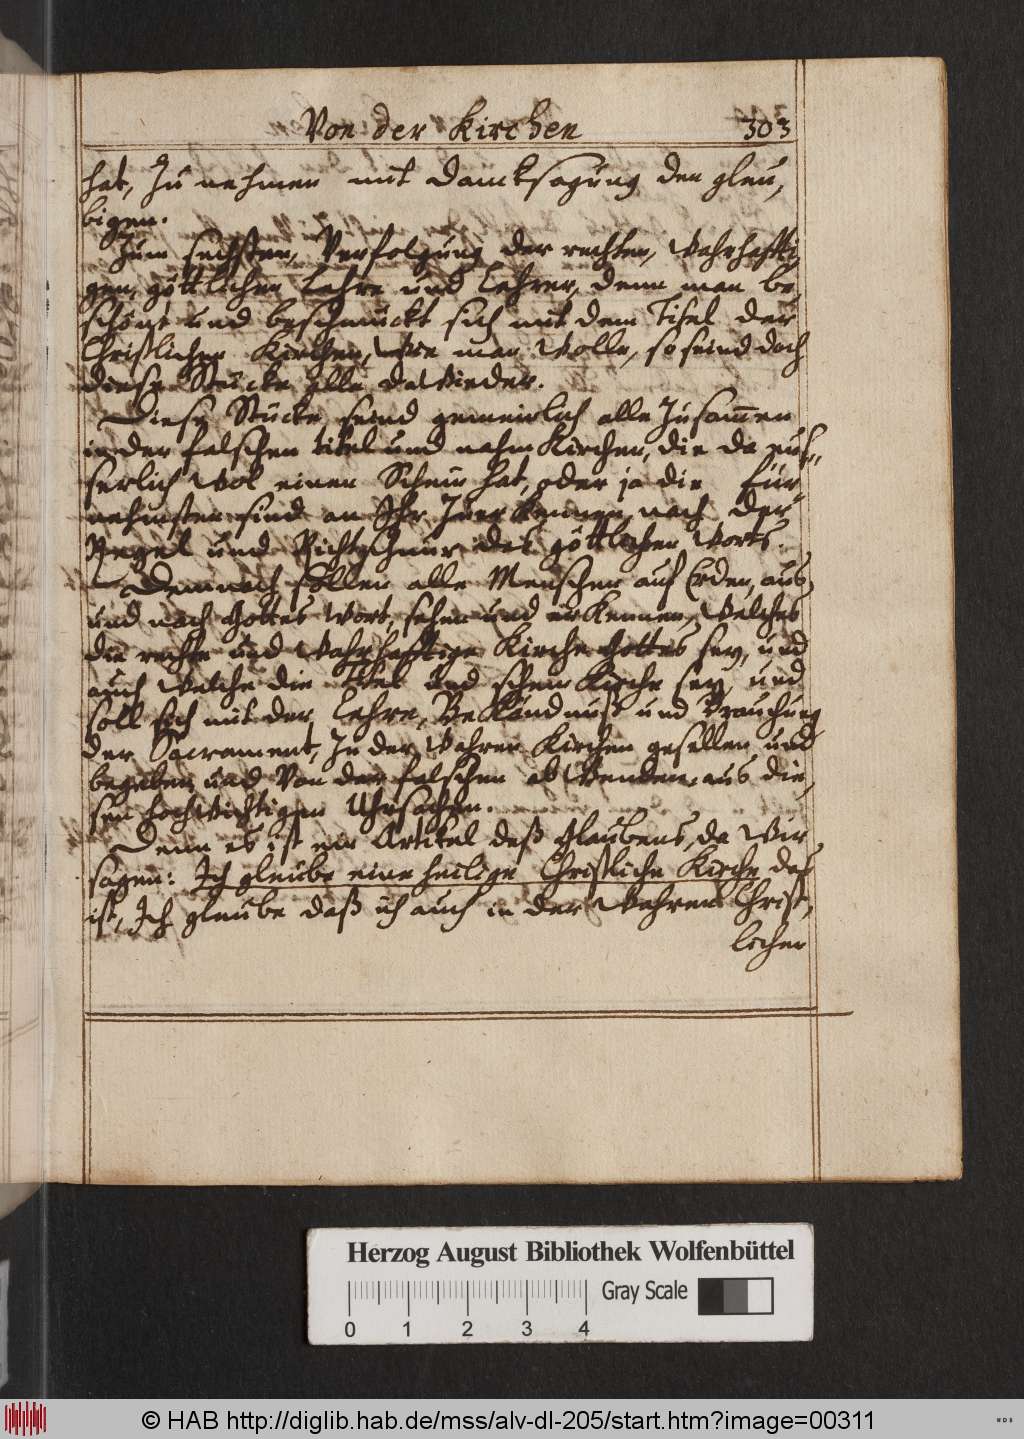 Von der Kirchen 303
hat, Zu nehmen mit dancksagung den gleu,
bigen.
Zum sechsten, Verfolgung der rechten, Wahrhaffti,
gen, göttlichen Lehre und Lehrer, denn man be,
schönt und beschmückt sich mit dem Titel der
Christlichen Kirchen, Wie man Wolle, so seind doch
diese Stücke alle daWieder.
Diese Stücke seind gemeinlich alle Zusam̄en
in der falschen titel und nahm Kirchen, die da eus,
serlich Wol einen Schein hat, oder ja die für
nehmsten sind an Ihr Zuerkennen, nach der
Regel und Richtschnur des göttlichen Worts.
Demnach sollen alle Menschen auf Erden, aus
und nach Gottes Wort, sehen und erkennen, Welches
die rechte und Wahrhafftige Kirche Gottes sey, und
auch Welche die Titel und schein Kirche sey, und
soll sich mit der Lehre, Bekändnuß und Brauchung
der Sacrament, Zu der Wahren Kirchen gesellen und
begeben, und Von der falschen abWenden, aus die,
sen hochWichtigen Uhrsachen.
Denn es ist ein Artikel deß Glaubens, da Wir
sagen: Ich gleube eine heilige Christliche Kirche, das
ist, Ich gleube daß ich auch in der Wahren Christ,
licher
Herzog August Bibliothek Wolfenbüttel
Gray Scale
0 1 2 3 4
© HAB http://diglib.hab.de/mss/alv-dl-205/start.htm?image=00311